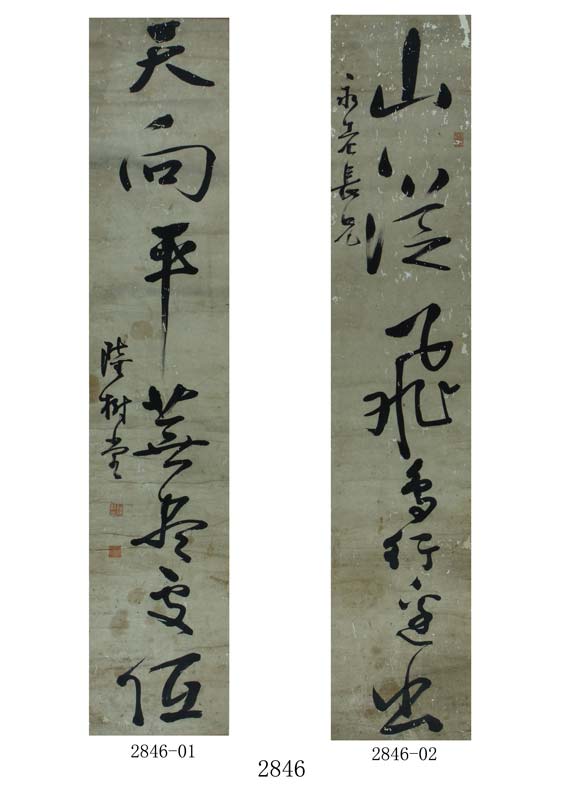 山從飛鳥行邊出
永老長兄
天向平蕪盡處低
陸樹堂
2846-01
2846-02
2846